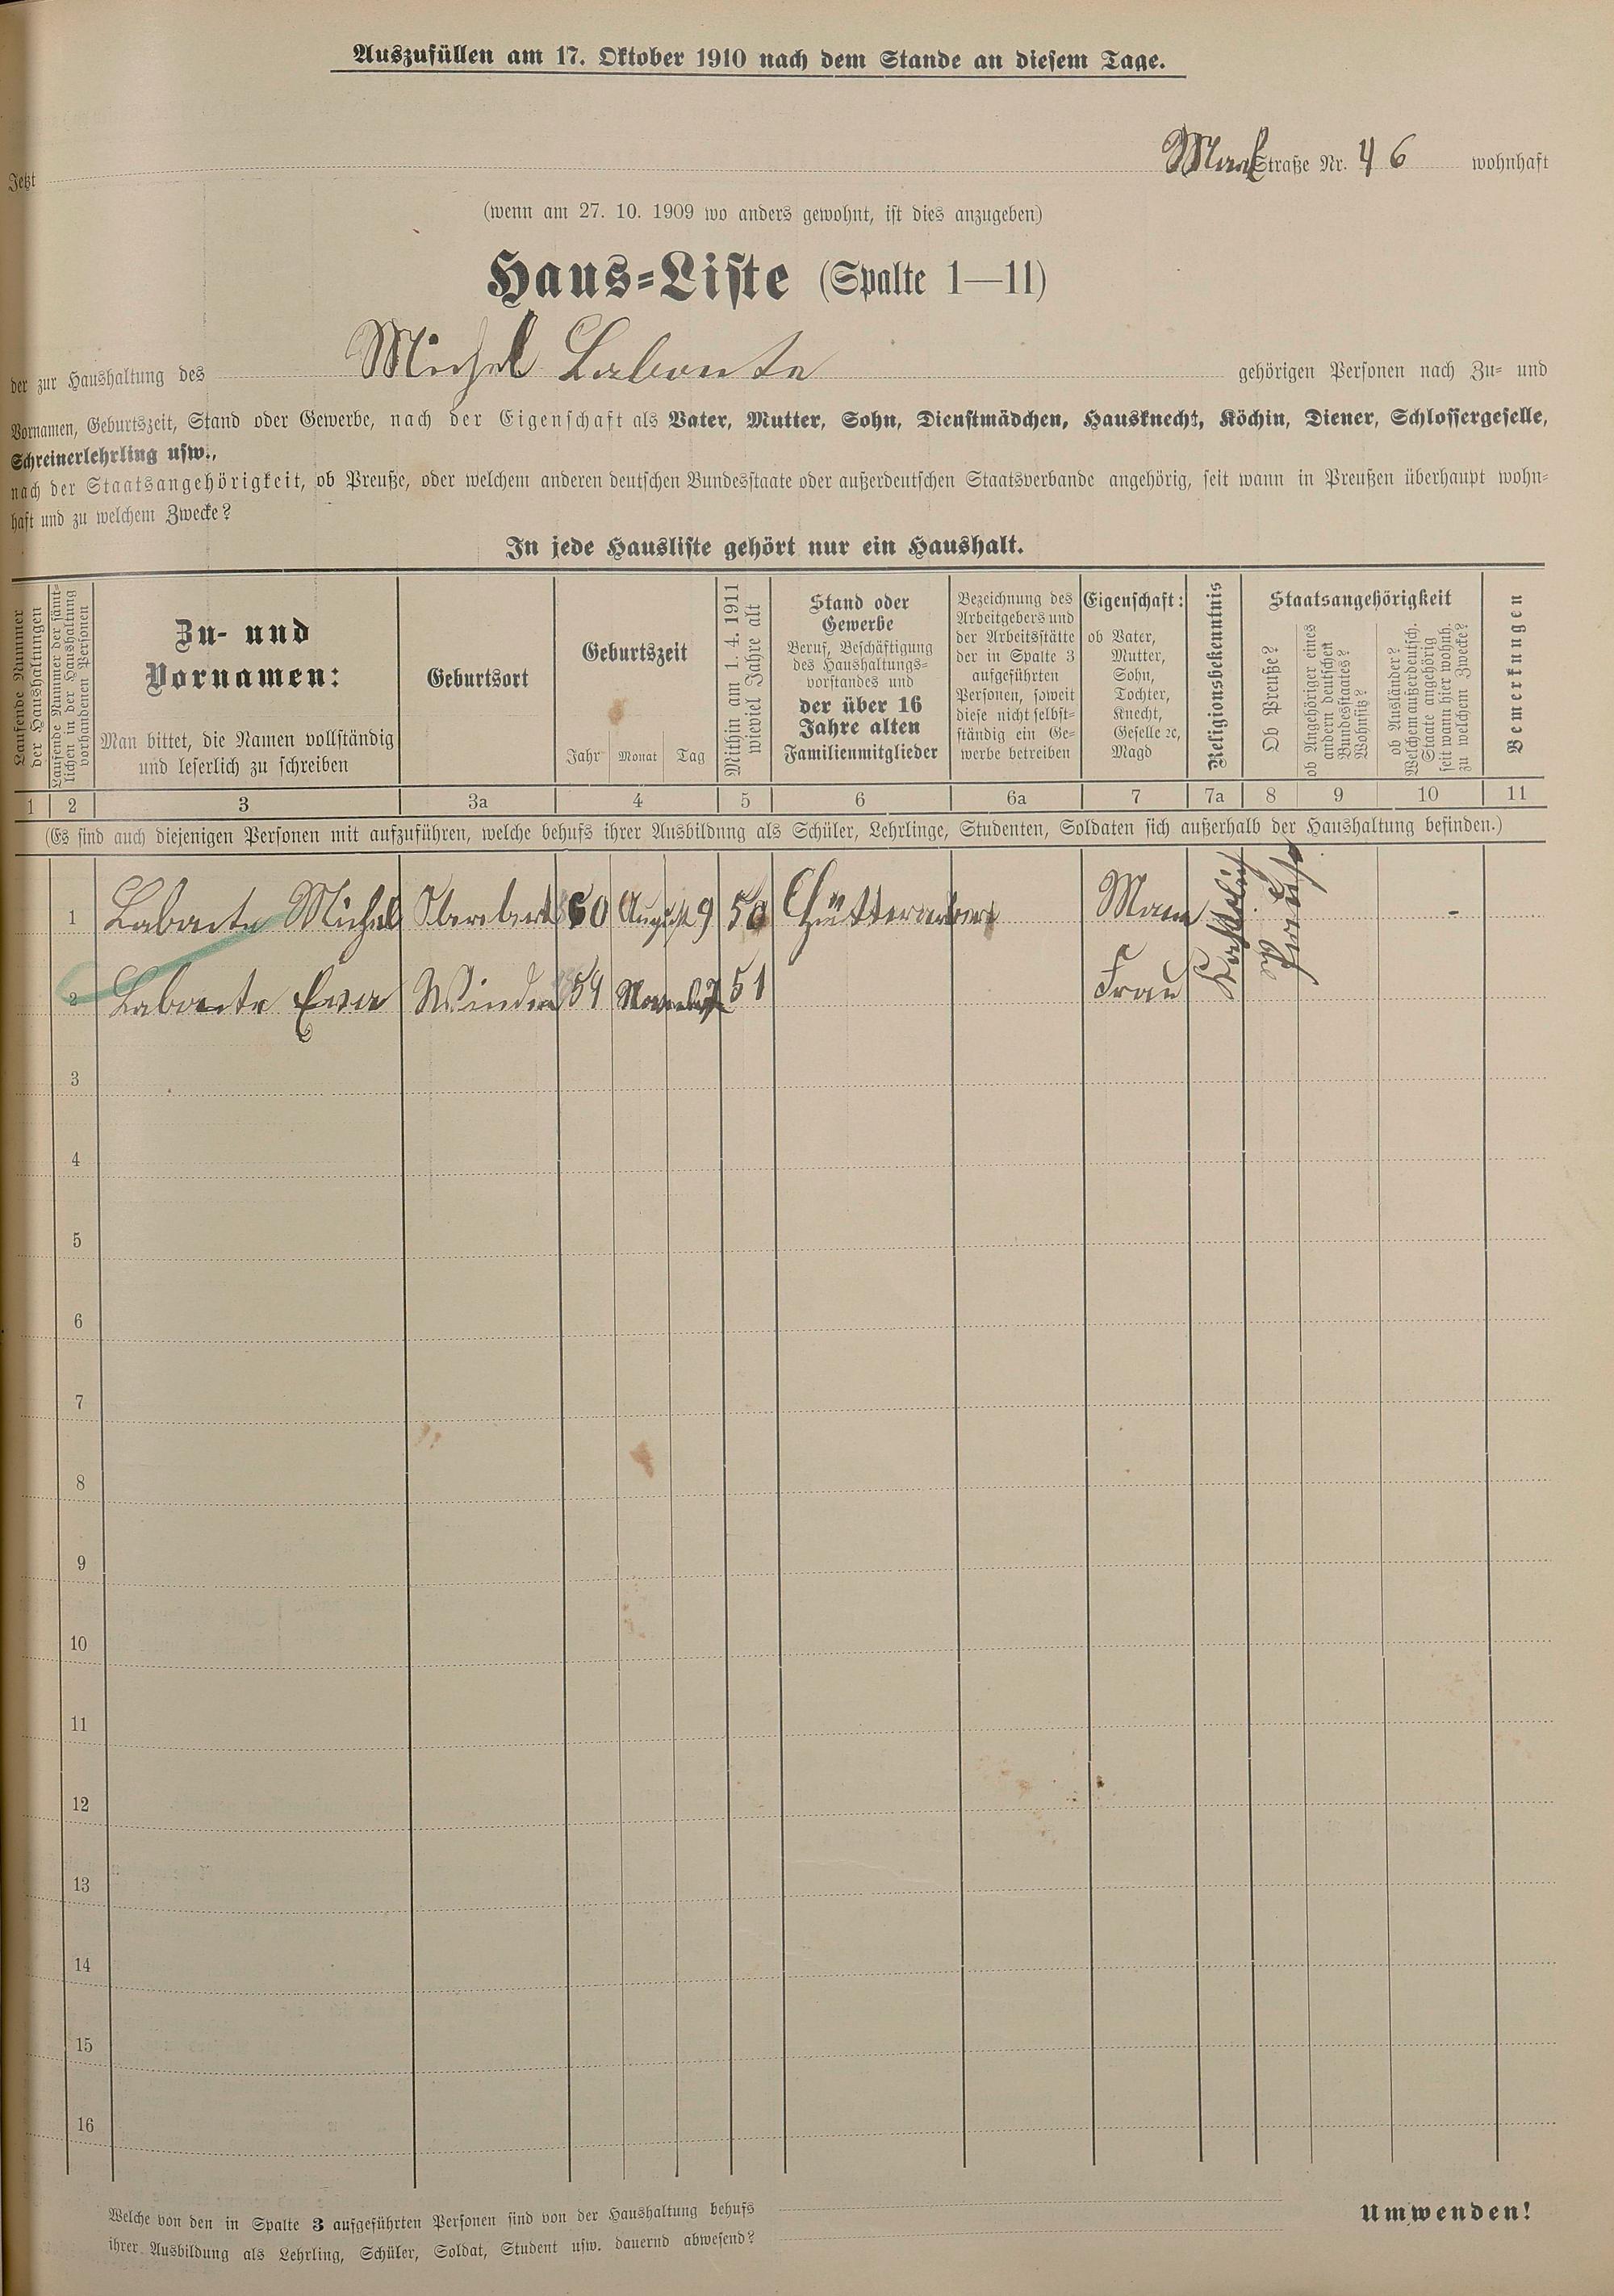 Auszufüllen am 17. Oktober 1910 nach dem Stande an diesem Tage.
Jetzt Straße Nr. 46 wohnhaft
(wenn am 27. 10. 1909 wo anders gewohnt, ist dies anzugeben)
Haus-Liste (Spalte 1—11)
der zur Haushaltung des Michel Labonte gehörigen Personen nach Zu- und
Vornamen, Geburtszeit, Stand oder Gewerbe, nach der Eigenschaft als Vater, Mutter, Sohn, Dienstmädchen, Hausknecht, Köchin, Diener, Schlossergeselle,
Schreinerlehrling usw.,
nach der Staatsangehörigkeit, ob Preuße, oder welchem anderen deutschen Bundesstaate oder außerdeutschen Staatsverbande angehörig, seit wann in Preußen überhaupt wohn-
haft und zu welchem Zwecke?
In jede Hausliste gehört nur ein Haushalt.
Laufende Nummer
der Haushaltungen
Laufende Nummer der sämt-
lichen in der Haushaltung
vorhandenen Personen
Zu- und
Vornamen:
Man bittet, die Namen vollständig
und leserlich zu schreiben
Geburtsort
Geburtszeit
Jahr Monat Tag
Mithin am 1. 4. 1911
wieviel Jahre alt
Stand oder
Gewerbe
Beruf, Beschäftigung
des Haushaltungs-
vorstandes und
der über 16
Jahre alten
Familienmitglieder
Bezeichnung des
Arbeitgebers und
der Arbeitsstätte
der in Spalte 3
aufgeführten
Personen, soweit
diese nicht selbst-
ständig ein Ge-
werbe betreiben
Eigenschaft:
ob Vater,
Mutter,
Sohn,
Tochter,
Knecht,
Geselle ꝛc,
Magd
Religionsbekenntnis
Staatsangehörigkeit
Ob Preuße?
ob Angehöriger eines
andern deutschen
Bundesstaates?
Wohnsitz?
ob Ausländer?
Welchem außerdeutsch.
Staate angehörig
seit wann hier wohnh.
zu welchem Zwecke?
Bemerkungen
1 2 3 3a 4 5 6 6a 7 7a 8 9 10 11
(Es sind auch diejenigen Personen mit aufzuführen, welche behufs ihrer Ausbildung als Schüler, Lehrlinge, Studenten, Soldaten sich außerhalb der Haushaltung befinden.)
1 Labonte Michel 60 August 9 50 Hüttenarbeiter Mann Katholisch Preuße -
2 Labonte Eva 59 51 Frau
3
4
5
6
7
8
9
10
11
12
13
14
15
16
Welche von den in Spalte 3 aufgeführten Personen sind von der Haushaltung behufs
ihrer Ausbildung als Lehrling, Schüler, Soldat, Student usw. dauernd abwesend?
Umwenden!